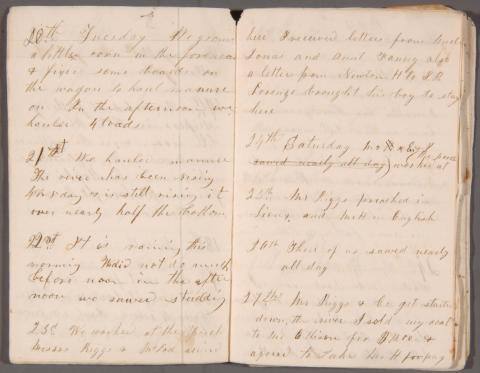 20th Tuesday We ground
a little corn in the forenoon
& fixed some boards on
the wagon to haul manure
on In the afternoon we
hauled 4 loads
21st We hauled manure
The river has been rising
& is still rising it
over nearly half the bottom
22nd It is raining this
morning did not do much
before noon in the after
noon we sawed
23d We worked at the
Messrs Riggs & arrived
here I received letters from
Jonas and Aunt Fanny also
a letter from Newton H &
brought his boy to stay
here
24th Saturday
sawed nearly all day) worked at
25th Mr Riggs preached in
Sioux and Mr H in English
26th of us sawed nearly
all day
27th Mr Riggs & Co got started
down the river I sold my coat
to Mr for &
agreed to take Mr H for pay